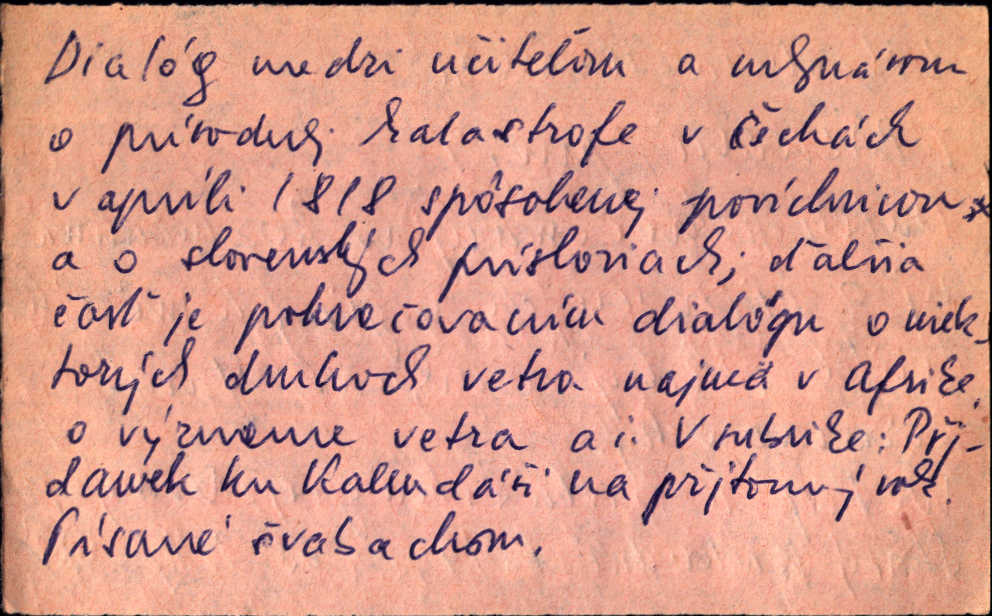 Dialóg medzi učiteľom a mlynárom
o prírodnej katastrofe v Čechách
v apríli 1818 spôsobenej povíchricou
a o slovenských prísloviach; ďalšia
časť je pokračovaním dialógu o niek-
torých druhoch vetra najmä v Afrike,
o význame vetra a i. V rubrike: Přj-
dawek ku Kalendáři na přjtomný rok.
Písané švabachom.